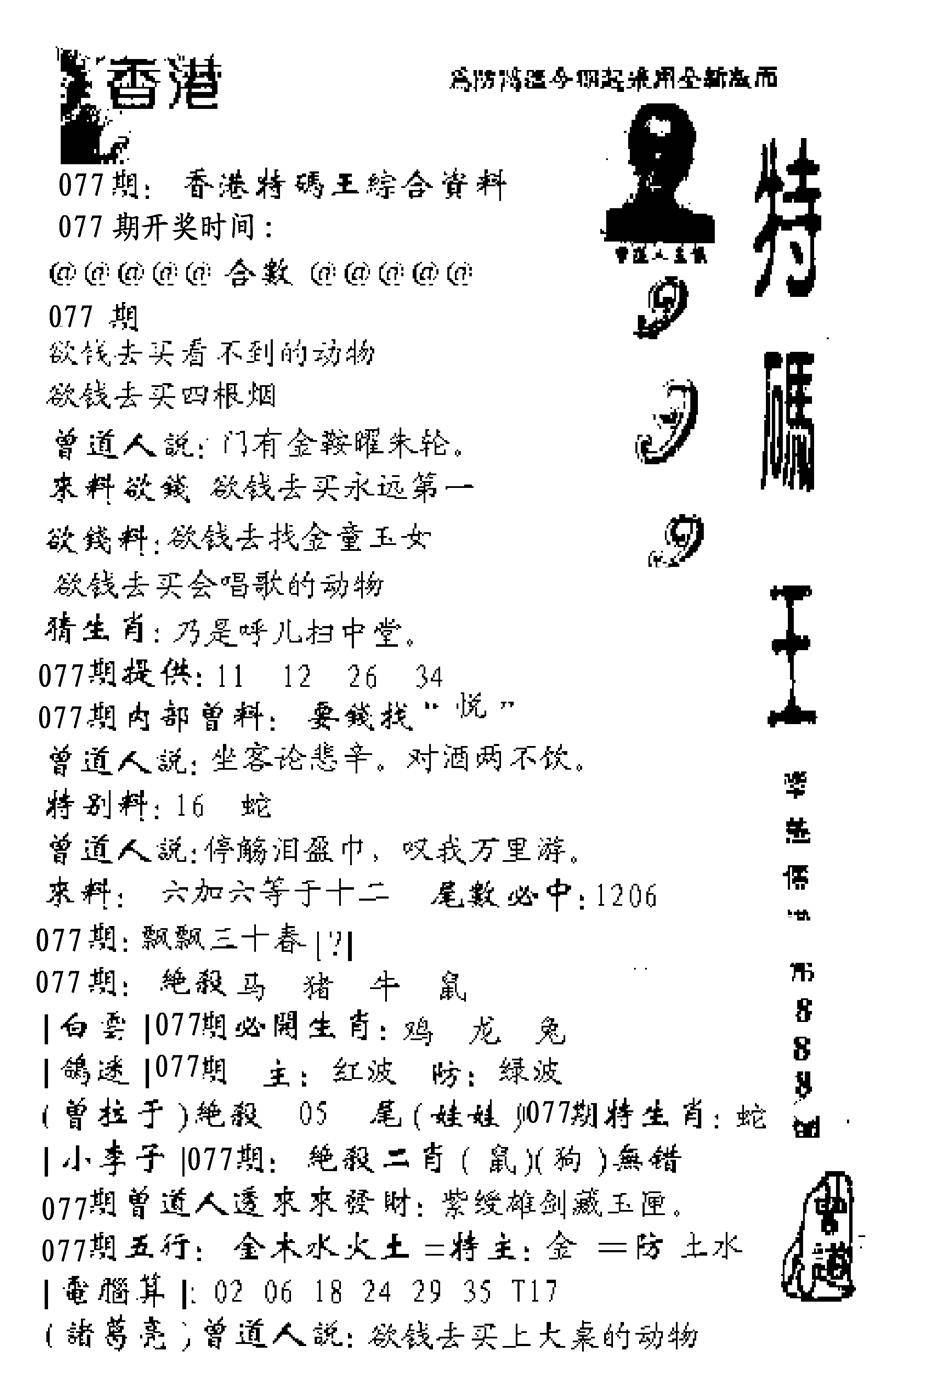 香港
為防偽
077期： 香港特碼王綜合資料
077 期开奖时间：
@@@@@ 合數 @@@@@
077 期
欲钱去买看不到的动物
欲钱去买四根烟
曾道人説：门有金鞍曜朱轮。
來料欲錢 欲钱去买永远第一
欲錢料：欲钱去找金童玉女
欲钱去买会唱歌的动物
猜生肖：乃是呼儿扫中堂。
077期提供：11 12 26 34
077期内部曾料： 要錢找“悦”
曾道人説：坐客论悲辛。对酒两不饮。
特别料：16 蛇
曾道人説：停觞泪盈巾，叹我万里游。
來料： 六加六等于十二 尾數必中：1206
077期：飘飘三十春|?|
077期： 絶殺马 猪 牛 鼠
|白雲|077期必開生肖：鸡 龙 兔
|鴿迷|077期 主：红波 防：绿波
(曾拉于)絶殺 05 尾(娃娃)077期特生肖：蛇
|小李子|077期： 絶殺二肖(鼠)(狗)無错
077期曾道人透來來發財：紫绶雄剑藏玉匣。
077期五行： 金木水火土=特主：金 =防 土水
|電腦算|: 02 06 18 24 29 35 T17
(諸葛亮)曾道人説：欲钱去买上大桌的动物
曾道人
特
碼
王
8
8
8
曾道